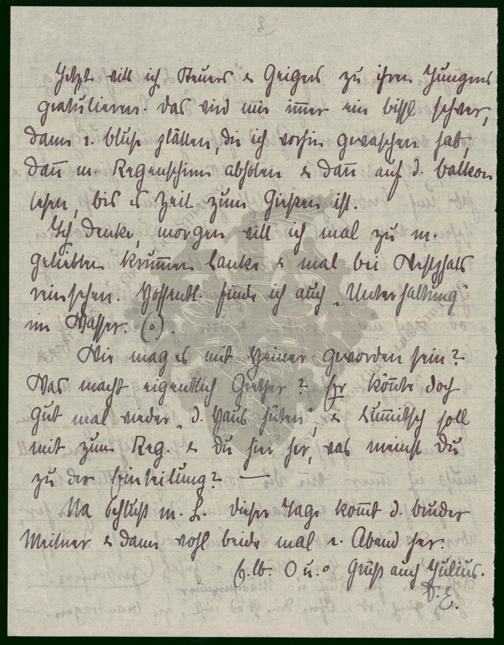 Jetzt will ich Steuers & Geigers zu ihren Jungens
gratulieren. Das wird mir immer ein bißl schwer,
dann e. Bluse plätten, die ich vorhin gewaschen hab
dañ m. Regenschirm abholen & dañ auf d. Balkon
lesen, bis es Zeit zum Gießen ist.
Ich denke, morgen will ich mal zu m.
geliebten Krummen Lanke & mal bei Westphals
reinsehen. Hoffentl. finde ich auch „Unterhaltung"
im Wasser.
Wie mag es mit Heiner geworden sein?
Was macht eigentlich Günther? Er könnte doch
gut mal wieder „d. Haus hüten", & soll
mit zum Reg. & du hier her, was meinst Du
zu der Einteilung? —
Na Schluß m. L. dieser Tage kom̄t d. Bruder
Meitner & dann wohl beide mal e. Abend her.
Gruß auch Julius.
D. E.